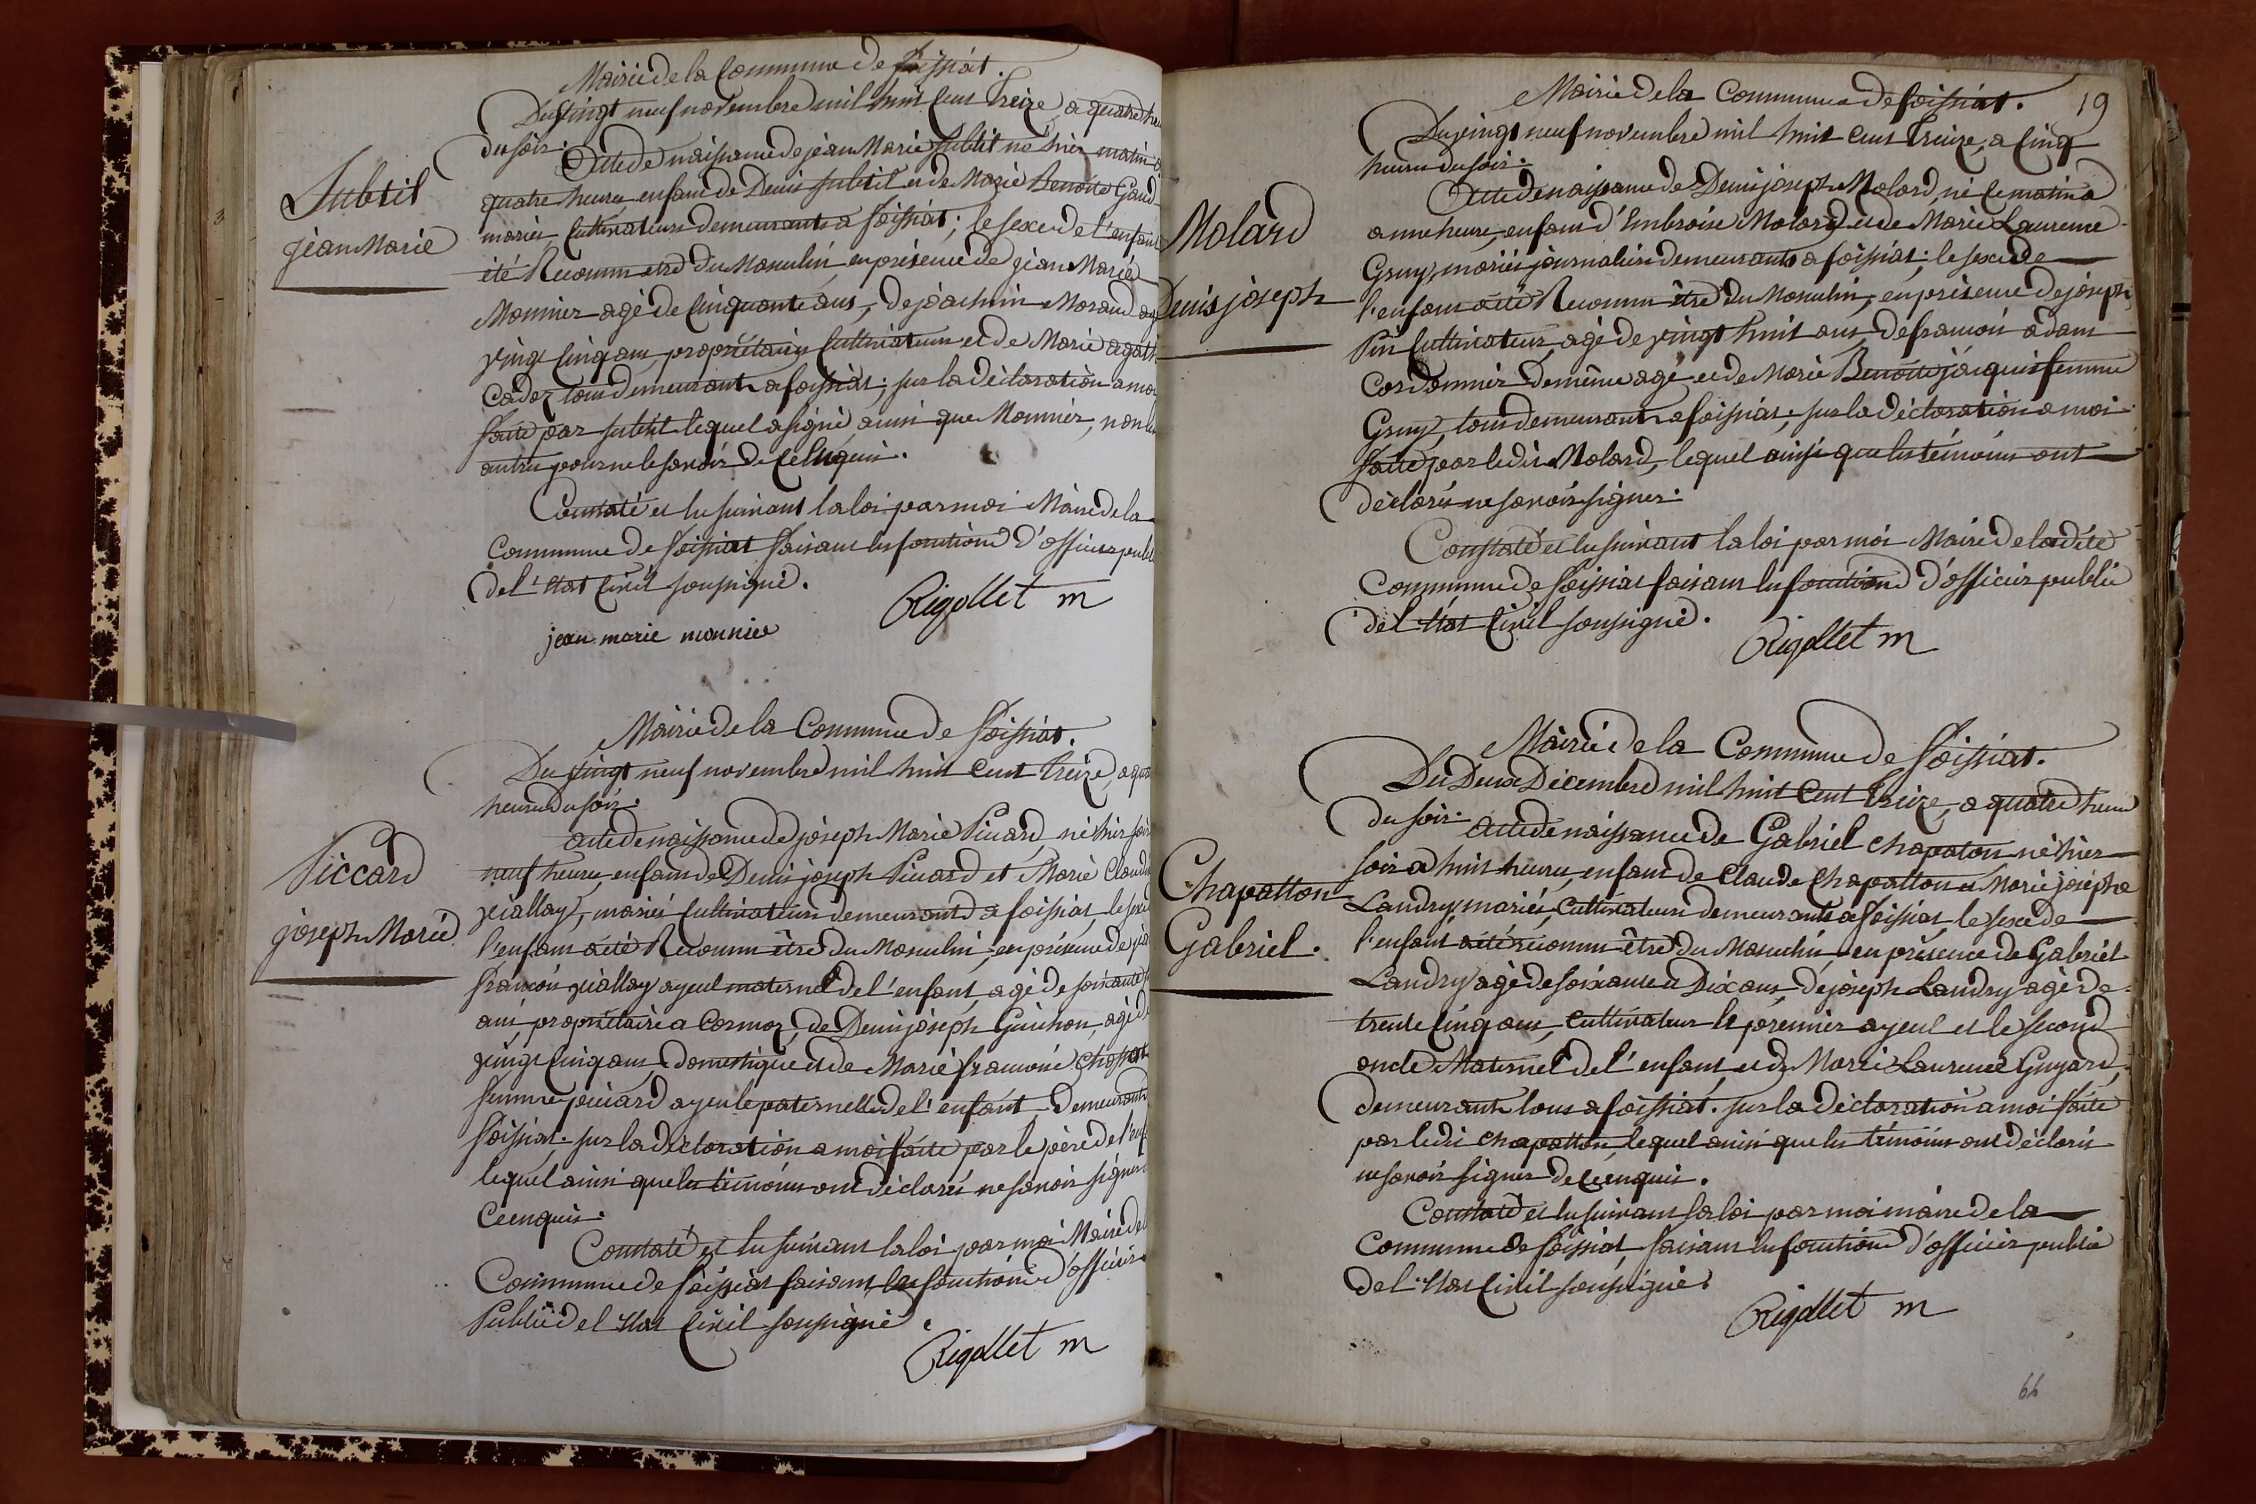 Mairie de la Commune de foissiat.
Du vingt neuf novembre mil huit Cent treize, a quatre heu
du soir.
Acte de naissance de jéan Marie Subtil né hier matin a
quatre heures, enfant de Denis Subtil et de Marie Benoite Gaud
mariés Cultivateurs demeurants a foissiat; le sexe de l'enfant
été Reconnu etre du Masculin, en présence de jéan Marie
Monnier agé de Cinquante ans, de joachim Morand ag
vingt Cinq ans, propriétaires Cultivateurs et de Marie agath
Cadez tous demeurants a foissiat; sur la déclaration a moi
faite par Subtil lequel a signé ainsi que Monnier, non les
autres pour ne le savoir de Ce Enquis.
Constaté et lu suivant la loi par moi Maire de la
Commune de foissiat faisant les fonctions d'officier publi
de l'Etat Civil soussigné.
Rigollet m
jean marie monnier
Subtil
jéan Marie
Mairie de la Commune de foissiat.
Du vingt neuf novembre mil huit Cent treize, a quat
heures du soir.
acte de naissance de joseph Marie Piccard, né hier soir
neuf heures, enfant de Denis joseph Piccard et Marie Claud
viallay, mariés Cultivateurs demeurants a foissiat, le sexe
l'enfant a été Reconnu être du Masculin, en présence de jéa
francois viallay ayeul maternel de l'enfant, agé de soixante
ans, propriétaire a Cormoz, de Denis joseph Guichon, agé de
vingt Cinq ans, domestique et de Marie francoise
femme piccard ayeule paternelle de l'enfant, demeurants
foissiat. sur la déclaration a moi faite par le père de l'enf
lequel ainsi que les témoins ont déclarés ne savoir signer
Ce enquis.
Constaté et lu suivant la loi par moi Maire de
Commune de foissiat faisant les fonctions d'officier
Public de l'Etat Civil soussigné.
Rigollet m
Piccard
joseph Marie
19
Mairie de la Commune de foissiat.
Du vingt neuf novembre mil huit Cent treize, a Cinq
heures du soir.
Acte de naissance de Denis joseph Molard, né Ce matin a
onne heure, enfant d'Embroise Molard et de Marie Laurence
Gruy, mariés journaliers demeurants a foissiat; le sexe de
l'enfant a été Reconnu être du Masculin, en présence de joseph
Pin Cultivateur agé de vingt huit ans, de francois adam
Cordonnier de même age et de Marie Benoite jacquis femme
Gruy, tous demeurants a foissiat; sur la déclaration a moi
faite par ledit Molard, lequel ainsi que les témoins ont
déclarés ne savoir signer.
Constaté et lu suivant la loi par moi Maire de ladite
Commune de foissiat faisant les fonctions d'officier public
de l'Etat Civil soussigné.
Rigollet m
Molard
Denis joseph
Mairie de la Commune de foissiat.
Du Deux Décembre mil huit Cent treize, a quatre heures
du soir.
Acte de naissance de Gabriel chapaton né hier
soir a huit heures, enfant de Claude Chapatton et Marie joséphe
Landry, mariés, Cultivateurs demeurants a foissiat, le sexe de
l'enfant a été reconnu être du Masculin en présence de Gabriel
Landry agé de soixante et Dix ans, de joseph Landry agé de
trente Cinq ans, Cultivateurs le premier ayeul et le second
oncle Maternel de l'enfant, et de Marie Laurence Guyard,
demeurants tous a foissiat. sur la déclaration a moi faite
par ledit Chapatton, lequel ainsi que les témoins ont déclarés
ne savoir signer de Ce enquis.
Constaté et lu suivant la loi par moi maire de la
Commune de foissiat faisant les fonctions d'officier public
de l'Etat Civil soussigné.
Rigollet m
Chapatton
Gabriel.
66